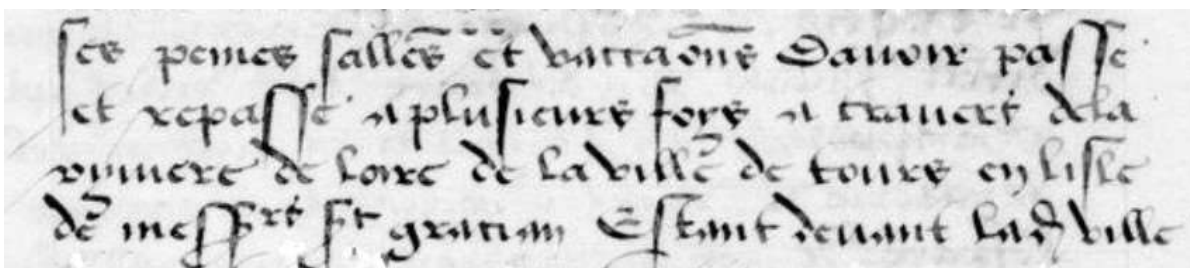 ses peines sallēs et vaccaōns Davoir passe
et repasse a plusieurs foys a travers dela
ryviere de loire de la ville de tours en lisle
de messrs st gracian Estant devant lad ville